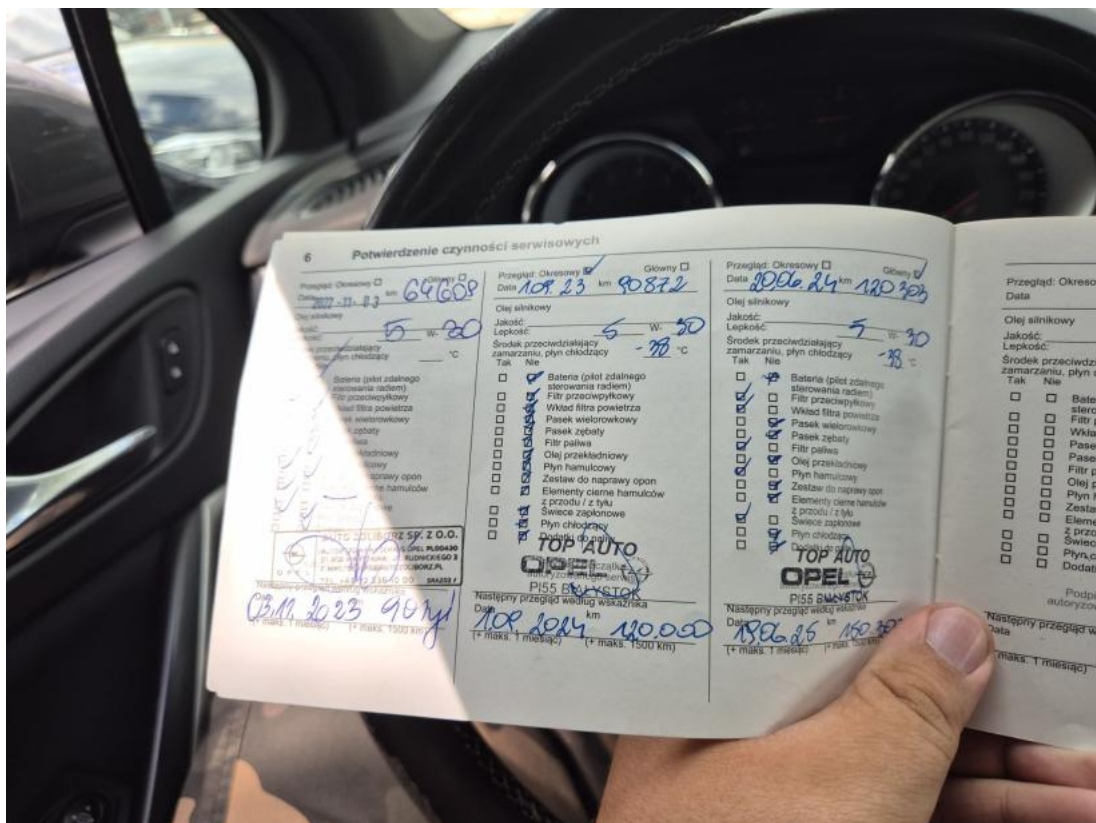 6 Potwierdzenie czynności serwisowych
Przegląd: Okresowy Główny
Data 2022-11-03 km 64608
Olej silnikowy
Jakość:
5 W- 30
przeciwdziałający
zamarzaniu, płyn chłodzący °C
Bateria (pilot zdalnego
sterowania radiem)
Filtr przeciwpyłkowy
Wkład filtra powietrza
Pasek wielorowkowy
zębaty
hamulcowy
naprawy opon
cierne hamulców
AUTO ŻOLIBORZ SP. Z O.O.
OPEL
Następny przegląd według wskaźnika
03.11.2023 90 tyś
(+ maks. 1 miesiąc) (+ maks. 1500 km)
Przegląd: Okresowy Główny
Data 1.09.23 km 90872
Olej silnikowy
Jakość:
Lepkość: 5 W- 30
Środek przeciwdziałający
zamarzaniu, płyn chłodzący -38 °C
Tak Nie
Bateria (pilot zdalnego
sterowania radiem)
Filtr przeciwpyłkowy
Wkład filtra powietrza
Pasek wielorowkowy
Pasek zębaty
Filtr paliwa
Olej przekładniowy
Płyn hamulcowy
Zestaw do naprawy opon
Elementy cierne hamulców
z przodu / z tyłu
Świece zapłonowe
Płyn chłodzący
Dodatki do paliw
TOP AUTO
OPEL
PI55 BIAŁYSTOK
Następny przegląd według wskaźnika
Data km
1.09.2024 120.000
(+ maks. 1 miesiąc) (+ maks. 1500 km)
Przegląd: Okresowy Główny
Data 20.06.24 km 120 303
Olej silnikowy
Jakość:
Lepkość: 5 W- 30
Środek przeciwdziałający
zamarzaniu, płyn chłodzący -38 °C
Tak Nie
Bateria (pilot zdalnego
sterowania radiem)
Filtr przeciwpyłkowy
Wkład filtra powietrza
Pasek wielorowkowy
Pasek zębaty
Filtr paliwa
Olej przekładniowy
Płyn hamulcowy
Zestaw do naprawy opon
Elementy cierne hamulców
z przodu / z tyłu
Świece zapłonowe
Płyn chłodzący
Dodatki do paliw
TOP AUTO
OPEL
PI55 BIAŁYSTOK
Następny przegląd według wskaźnika
Data km
19.06.25 150.303
(+ maks. 1 miesiąc) (+ maks. 1500 km)
Przegląd: Okreso
Data
Olej silnikowy
Jakość:
Lepkość:
Środek przeciwdz
zamarzaniu, płyn
Tak Nie
Bate
stero
Filtr
Wkła
Pase
Pase
Filtr p
Olej p
Płyn h
Zesta
Eleme
z przo
Świec
Płyn c
Dodat
Podpi
autoryzow
Następny przegląd w
Data
maks. 1 miesiąc)